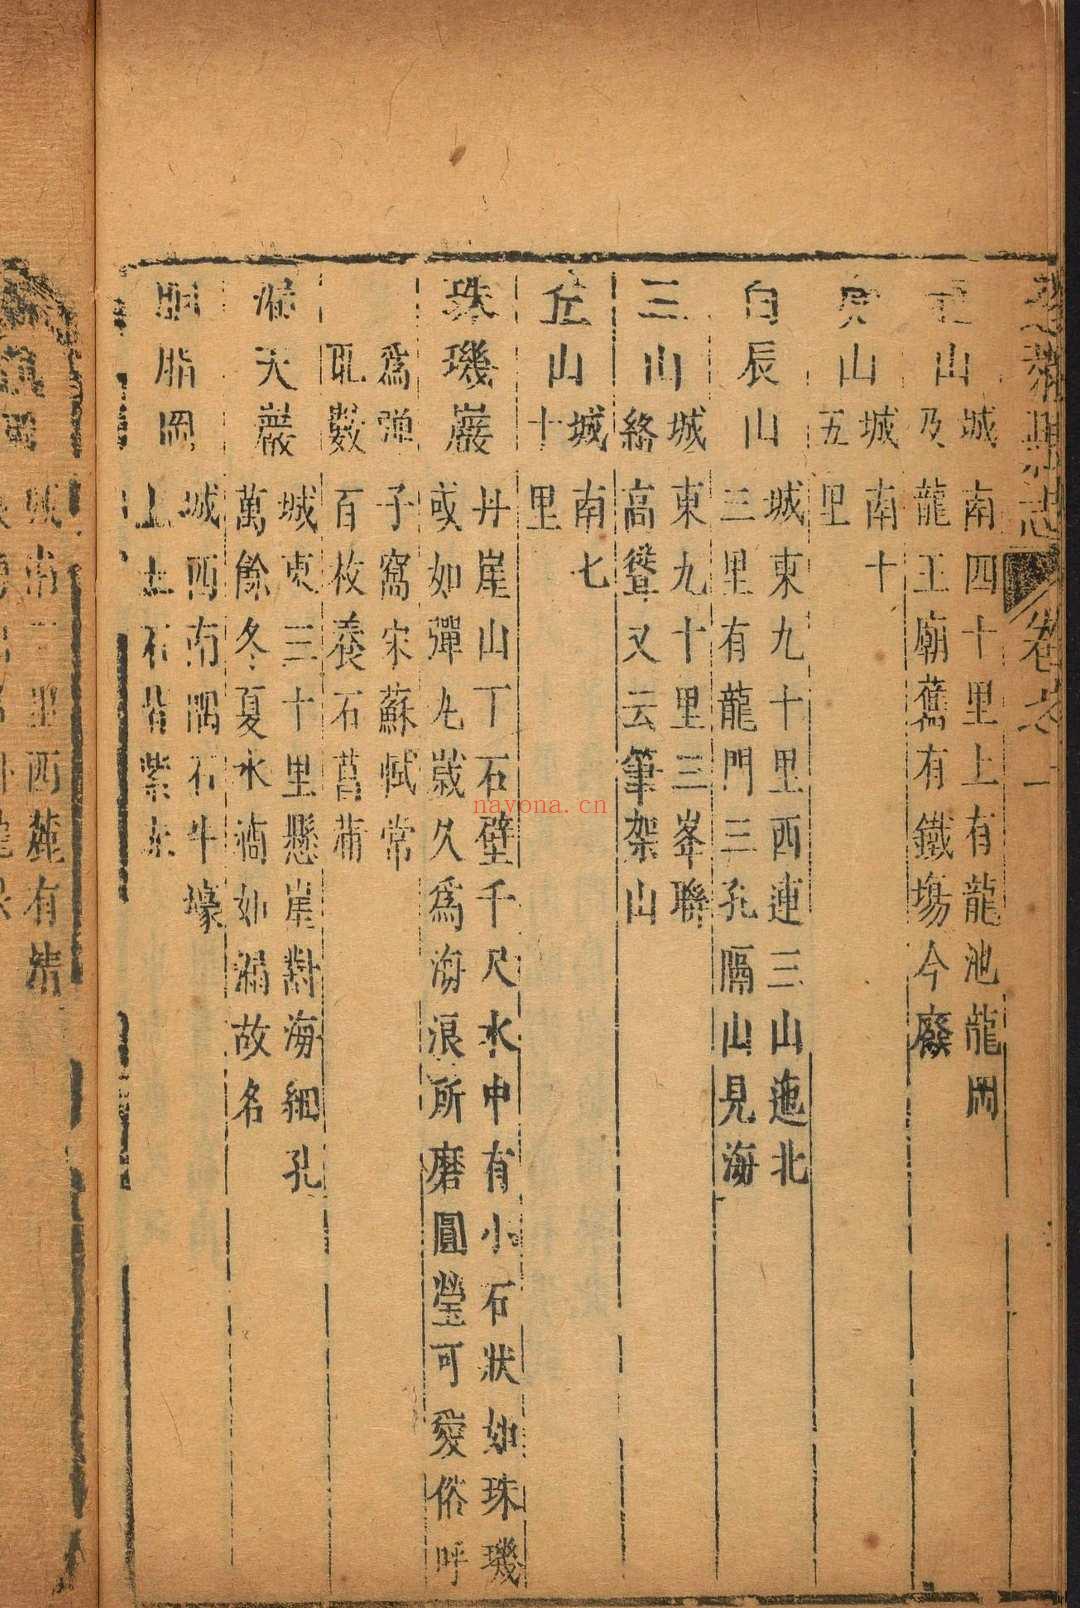 蓬萊縣志 卷之一
山 城南四十里上有龍池龍岡
及龍王廟舊有鐵場今廢
山 城南十
五里
白辰山 城東九十里西連三山迤北
三里有龍門三孔隔山見海
三山 城東九十里三峯聯
絡高聳又云筆架山
丘山 城南七
十里
珠璣巖 丹崖山丁石壁千尺水中有小石狀如珠璣
或如彈丸歲久為海浪所磨圓瑩可愛俗呼
為彈子窩宋蘇軾常
取數百枚養石菖蒲
漏天巖 城東三十里懸崖對海細孔
萬餘冬夏水滴如漏故名
胭脂岡 城西南隅石牛壕
上土石皆紫赤
城南二里西麓有清
nayona.cn